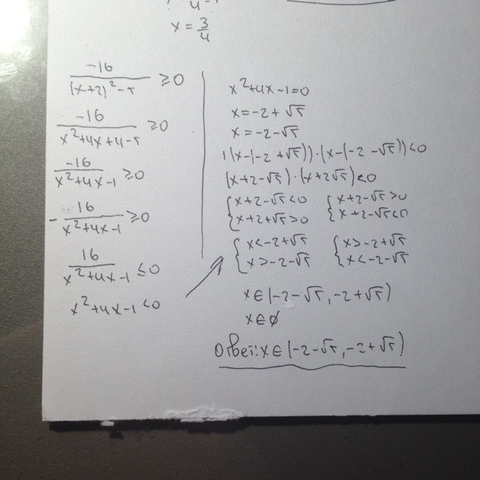 x = 3/4
-16/((x+2)²-5) ≥0
-16/(x²+4x+4-5) ≥0
-16/(x²+4x-1) ≥0
- 16/(x²+4x-1) ≥0
16/(x²+4x-1) ≤0
x²+4x-1<0
x²+4x-1=0
x=-2+√5
x=-2-√5
1(x-(-2+√5))·(x-(-2-√5))<0
(x+2-√5)·(x+2√5)<0
{x+2-√5<0 {x+2-√5>0
{x+2+√5>0 {x+2-√5<0
{x<-2+√5 {x>-2+√5
{x>-2-√5 {x<-2-√5
x∈(-2-√5,-2+√5)
x∈∅
Ответ:x∈(-2-√5,-2+√5)